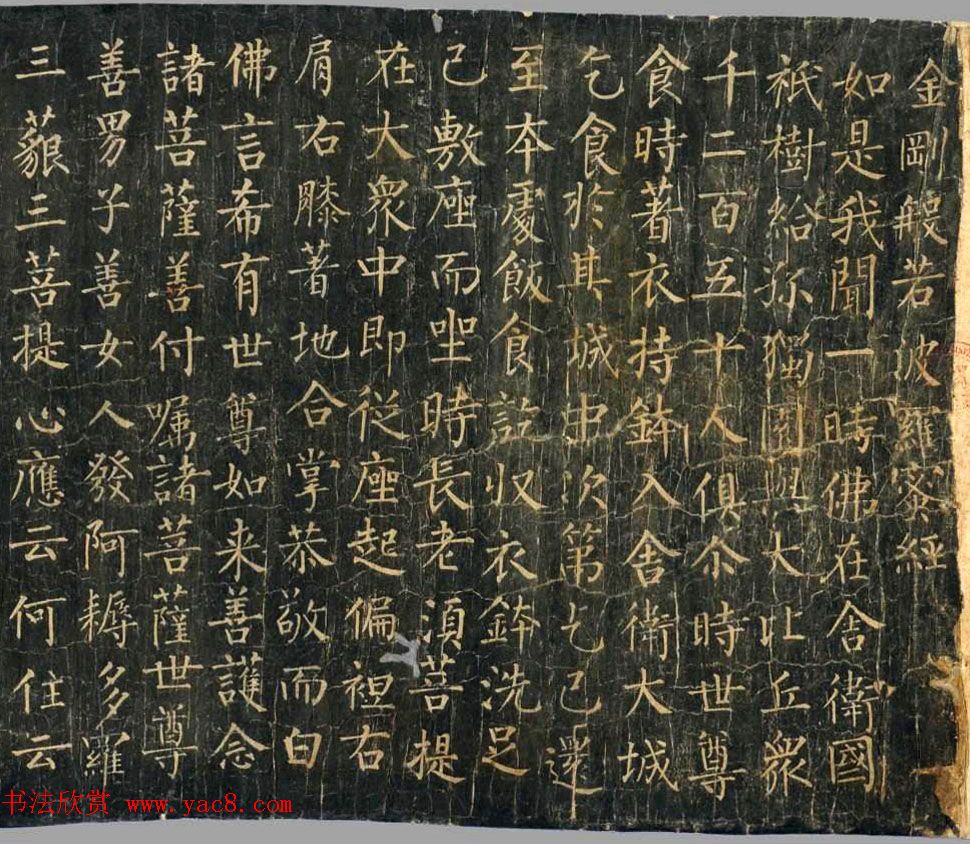 金剛般若波羅蜜經
如是我聞一時佛在舍衛國
祇樹給孤獨園與大比丘眾
千二百五十人俱尒時世尊
食時著衣持鉢入舍衛大城
乞食於其城中次第乞已還
至本處飯食訖収衣鉢洗足
已敷座而坐時長老須菩提
在大眾中即従座起偏袒右
肩右膝著地合掌恭敬而白
佛言希有世尊如来善護念
諸菩薩善付嘱諸菩薩世尊
善男子善女人發阿耨多羅
三藐三菩提心應云何住云
书法欣赏 www.yac8.com